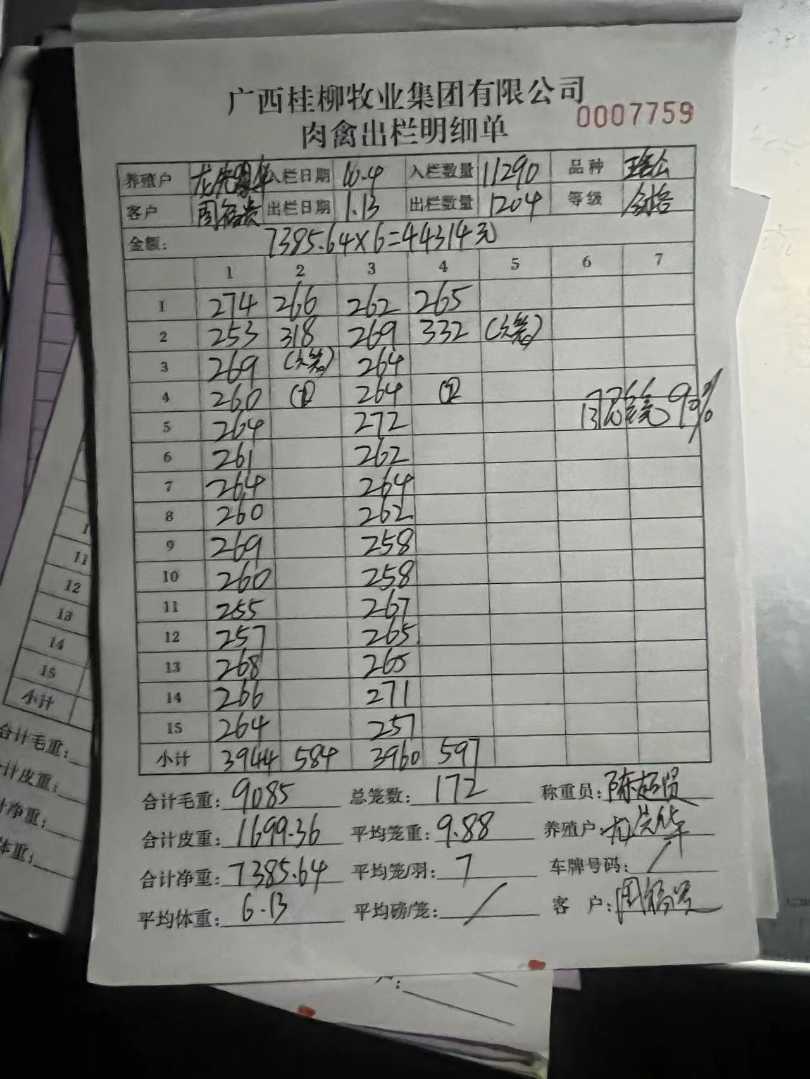 广西桂柳牧业集团有限公司
肉禽出栏明细单 0007759
养殖户 入栏日期 10.4 入栏数量 11290 品种
客户 周 出栏日期 1.13 出栏数量 1204 等级
金额: 7385.64×6=44314元
1 2 3 4 5 6 7
1 274 266 262 265
2 253 318 269 332
3 269 264
4 260 264
5 264 272
6 261 262
7 264 264
8 260 262
9 269 258
10 260 258
11 255 267
12 257 265
13 268 265
14 266 271
15 264 257
小计 3944 584 3960 597
合计毛重: 9085 总笼数: 172 称重员: 陈
合计皮重: 1699.36 平均笼重: 9.88 养殖户:
合计净重: 7385.64 平均笼/羽: 7 车牌号码: /
平均体重: 6.13 平均磅/笼: / 客 户: 周
11
12
13
14
15
小计
合计毛重:
计皮重:
净重:
体重: